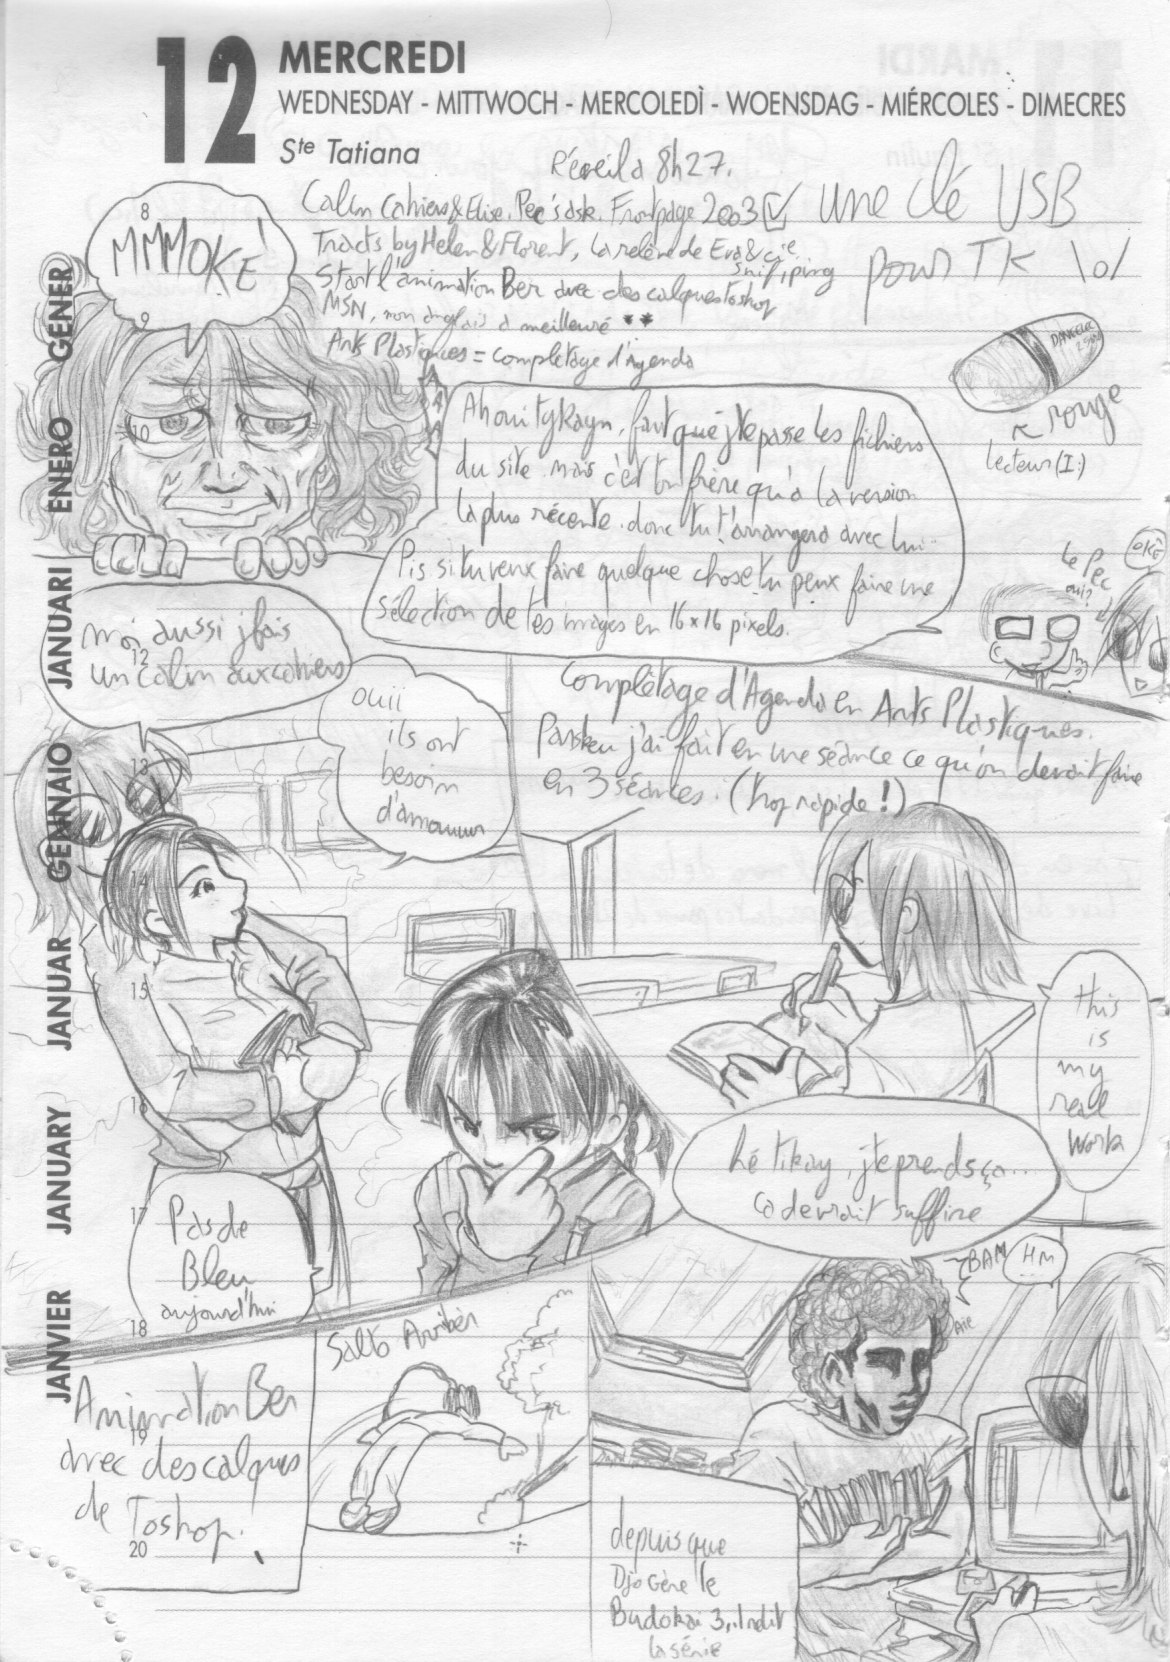 12 MERCREDI
WEDNESDAY - MITTWOCH - MERCOLEDÌ - WOENSDAG - MIÉRCOLES - DIMECRES
Ste Tatiana
Réveil à 8h27.
Calin Cahiers & Elise. Pec's ask. Frontpage 2003
Tracts by Helen & Florent, la relève de Eva & cie
snif, ping
Start l'animation Ber avec des calques toshop
MSN, mon anglais a meilleuré **
Arts Plastiques = complétage d'Agenda
une clé USB
pour TK \o/
DANGEUR
rouge
lecteur (I:)
8
MMMOKÉ!
9
10
Ah oui tykayn, faut que j'te passe les fichiers
du site mais c'est ton frère qu'a la version
la plus récente. donc tu t'arrangera avec lui..
Pis si tu veux faire quelque chose tu peux faire une
sélection de tes images en 16x16 pixels.
Le Pec
oui?
OKÉ
moi aussi j'fais
12
un calin aux cahiers
ouii
ils ont
besoin
d'amouuur
Complétage d'Agenda en Arts Plastiques.
Paskeu j'ai fait en une séance ce qu'on devait faire
en 3 séances. (trop rapide!)
13
14
15
16
this
is
my
real
work
hé tikay, j'te prends ça...
ça devrait suffire
17
Pas de
Bleu
aujourd'hui
18
BAM
HM
Aïe
Salto Arrièr
Animation Ber
19
avec des calques
de Toshop.
20
depuis que
Djo Gère le
Budokai 3,
la série
JANVIER JANUARY JANUAR GENNAIO JANUARI ENERO GENER